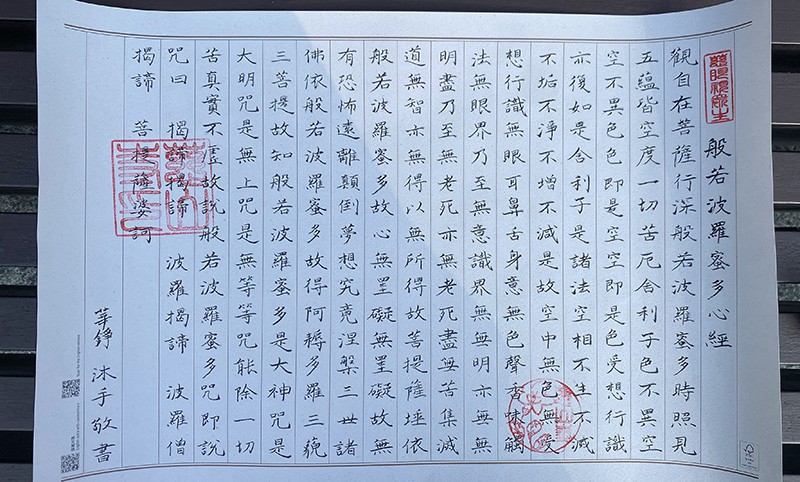 慈眼視眾生
般若波羅蜜多心經
觀自在菩薩行深般若波羅蜜多時照見
五蘊皆空度一切苦厄舍利子色不異空
空不異色色即是空空即是色受想行識
亦復如是舍利子是諸法空相不生不滅
不垢不淨不增不減是故空中無色無受
想行識無眼耳鼻舌身意無色聲香味觸
法無眼界乃至無意識界無無明亦無無
明盡乃至無老死亦無老死盡無苦集滅
道無智亦無得以無所得故菩提薩埵依
般若波羅蜜多故心無罣礙無罣礙故無
有恐怖遠離顛倒夢想究竟涅槃三世諸
佛依般若波羅蜜多故得阿耨多羅三藐
三菩提故知般若波羅蜜多是大神咒是
大明咒是無上咒是無等等咒能除一切
苦真實不虛故說般若波羅蜜多咒即說
咒曰 揭諦揭諦 波羅揭諦 波羅僧
揭諦 菩提薩婆訶
華錚 沐手敬書